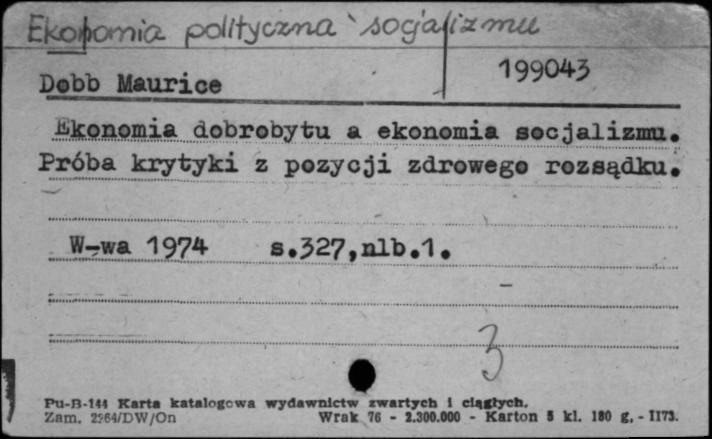 Ekonomia polityczna socjalizmu
199043
Dobb Maurice
Ekonomia dobrobytu a ekonomia socjalizmu.
Próba krytyki z pozycji zdrowego rozsądku.
W-wa 1974 s.327,nlb.1.
3
Pu-B-144 Karta katalogowa wydawnictw zwartych i ciągłych.
Zam. 2264/DW/On Wrak 76 - 2.300.000 - Karton 5 kl. 180 g. - II73.